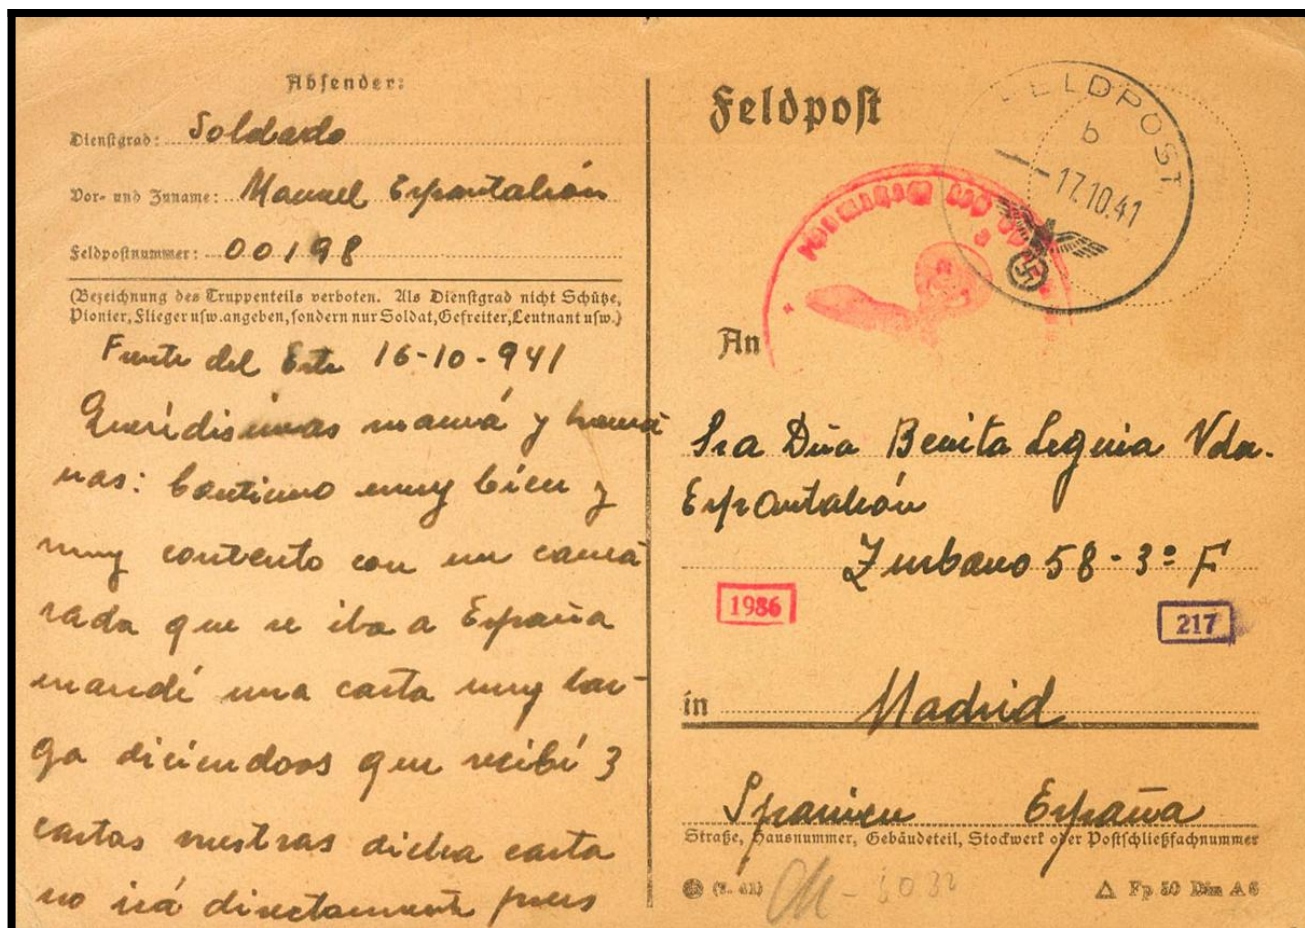 Absender:
Dienstgrad: Soldado
Vor- und Zuname: Manuel Espantaleón
Feldpostnummer: 00198
(Bezeichnung des Truppenteils verboten. Als Dienstgrad nicht Schütze,
Pionier, Flieger usw. angeben, sondern nur Soldat, Gefreiter, Leutnant usw.)
Frente del Este 16-10-941
Queridisimas mamá y herma
nas: Continuo muy bien y
muy contento con un cama
rada que se iba a España
mandé una carta muy lar-
ga diciendoos que recibí 3
cartas vuestras dicha carta
no irá directamente pues
Feldpost
FELDPOST
b
-17.10.41
An
Sra Dña Benita Leguia Vda.
Espantaleón
Zurbano 58-3º F
1986
217
in Madrid
Spanien España
Straße, Hausnummer, Gebäudeteil, Stockwerk oder Postschließfachnummer
Fp 50 Din A 6